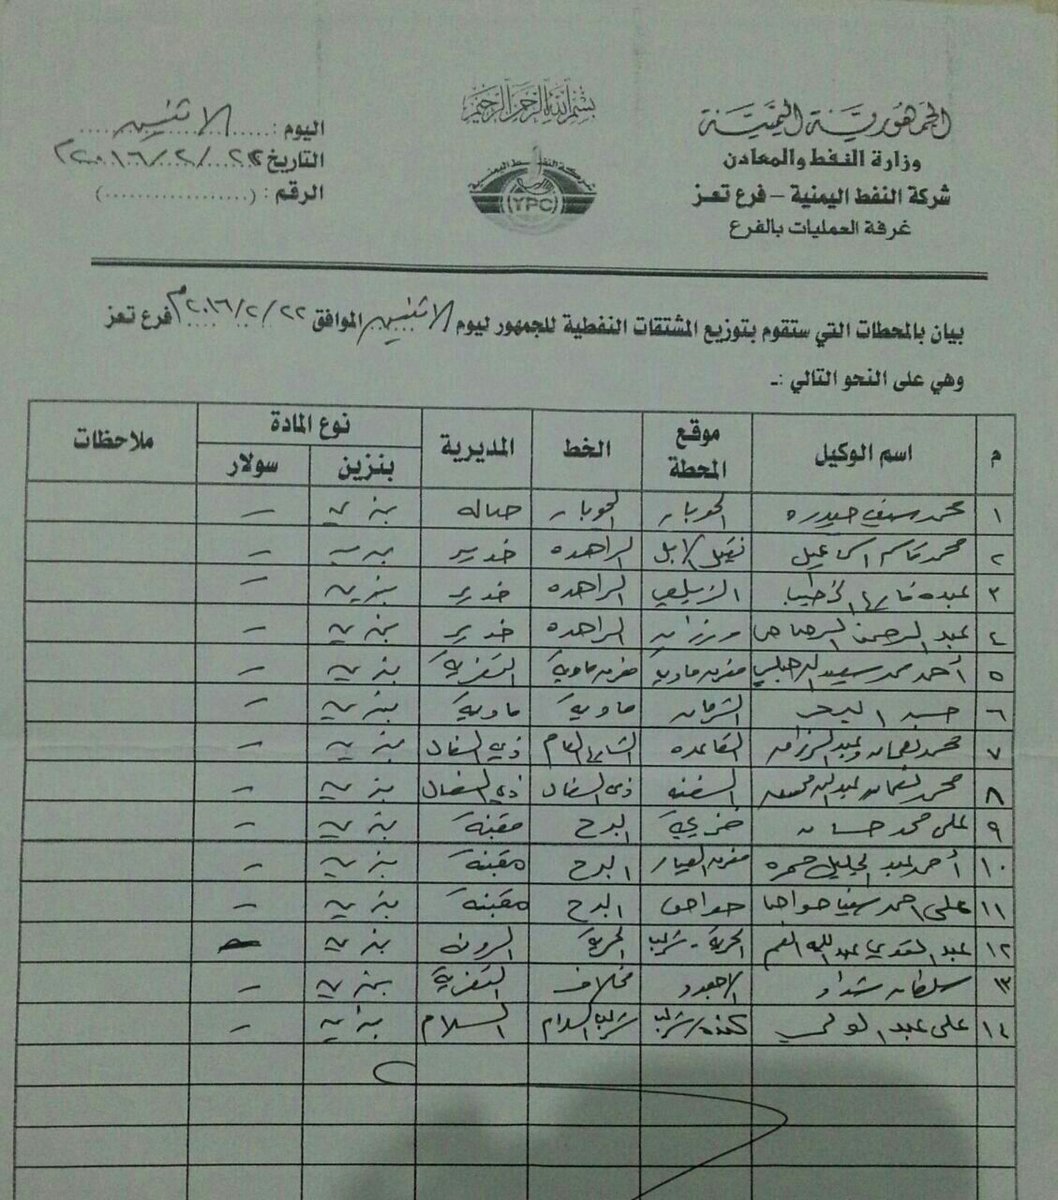 بسم الله الرحمن الرحيم
الجمهورية اليمنية
وزارة النفط والمعادن
شركة النفط اليمنية - فرع تعز
غرفة العمليات بالفرع
شركة النفط اليمنية
YPC
اليوم : الاثنين
التاريخ ٢٢/٢/٢٠١٦م
الرقم : (..................)
بيان بالمحطات التي ستقوم بتوزيع المشتقات النفطية للجمهور ليوم الاثنين الموافق ٢٢/٢/٢٠١٦م فرع تعز
وهي على النحو التالي :ـ
م اسم الوكيل موقع المحطة الخط المديرية نوع المادة ملاحظات
بنزين سولار
١ محمد سيف حيدره الحوبان الحوبان صاله بنزين –
٢ محمد قاسم اسماعيل نقيل الابل الراهده خدير بنزين –
٣ عبده الخطيب الزيلعي الراهده خدير بنزين –
٤ عبد الرحمن ورزان الراهده خدير بنزين –
٥ أحمد محمد سعيد مفرق ماويه مفرق ماويه التعزية بنزين –
٦ الشرمان ماوية ماوية بنزين –
٧ محمد نعمان وعبد الرزاق القاعده الشارع العام ذي السفال بنزين –
٨ محمد نعمان السفنه ذي السفال ذي السفال بنزين –
٩ على محمد حسان البرح مقبنة بنزين –
١٠ أحمد عبد الجليل حمره مفرق العيار البرح مقبنة بنزين –
١١ على احمد سيف البرح مقبنة بنزين –
١٢ عبد القوي عبد الله الحرية - شرعب الحرية الرونه بنزين –
١٣ سلطان شداد مخلاف التعزية بنزين –
١٤ على عبد الولي شرعب السلام السلام بنزين –